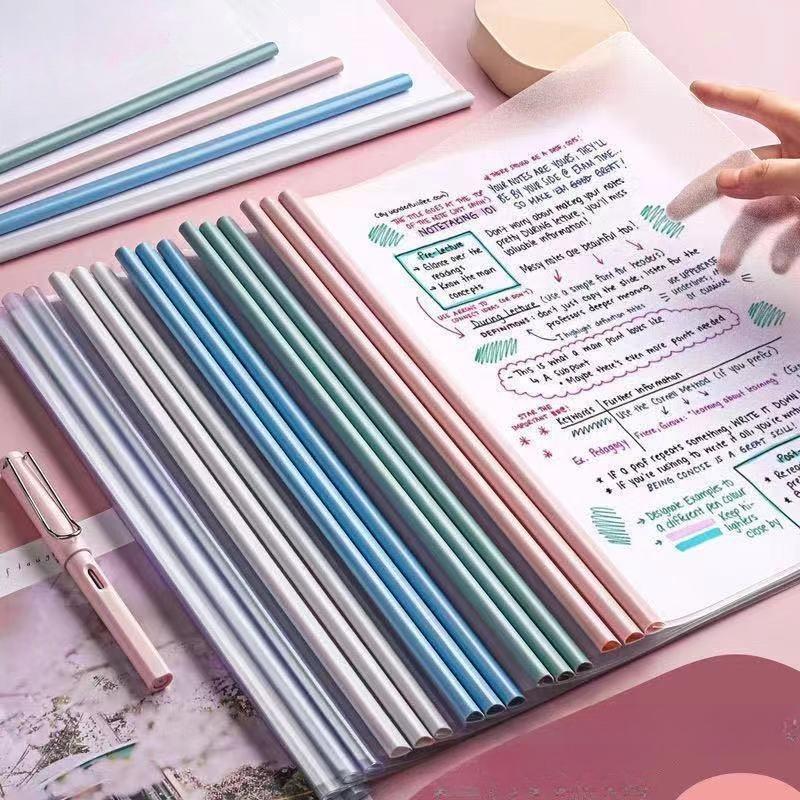 * THERE SHOULD BE A DATE, OOPS!
(by wonderfulifee.com)
THE TITLE GOES AT THE TOP
OF THE NOTE (JUST SAYING)
NOTETAKING 101
YOUR NOTES ARE YOURS, THEY'LL
BE BY YOUR SIDE @ EXAM TIME...
SO MAKE 'EM GOOD GREAT!
Pre-Lecture
→ Glance over the
readings
→ Know the main
concepts
Don't worry about making your notes
pretty DURING lecture, you'll miss
valuable information!
Messy notes are beautiful too!
USE ARROWS TO
CONNECT IDEAS (OR DON'T)
During Lecture (use a simple font for headers)
DEFINITIONS: don't just copy the slide, listen for the
professors deeper meaning
↑ highlight definition titles
USE UPPERCASE,
underlines,
or cursive
- This is what a main point looks like
↳ A subpoint
• Maybe there's even more points needed
STAR THE
IMPORTANT
Keywords
Further Information
Use the Cornell Method (if you prefer)
Ex. Pedagogy
"learning about learning"
* IF A prof REPEATS SOMETHING, WRITE IT DOWN
* If you're rushing to write it all, you're
BEING CONCISE IS A GREAT SKILL!
→ Designate Examples to
a different pen colour
→ Keep hi-
lighters
close by
Post
• Re rea